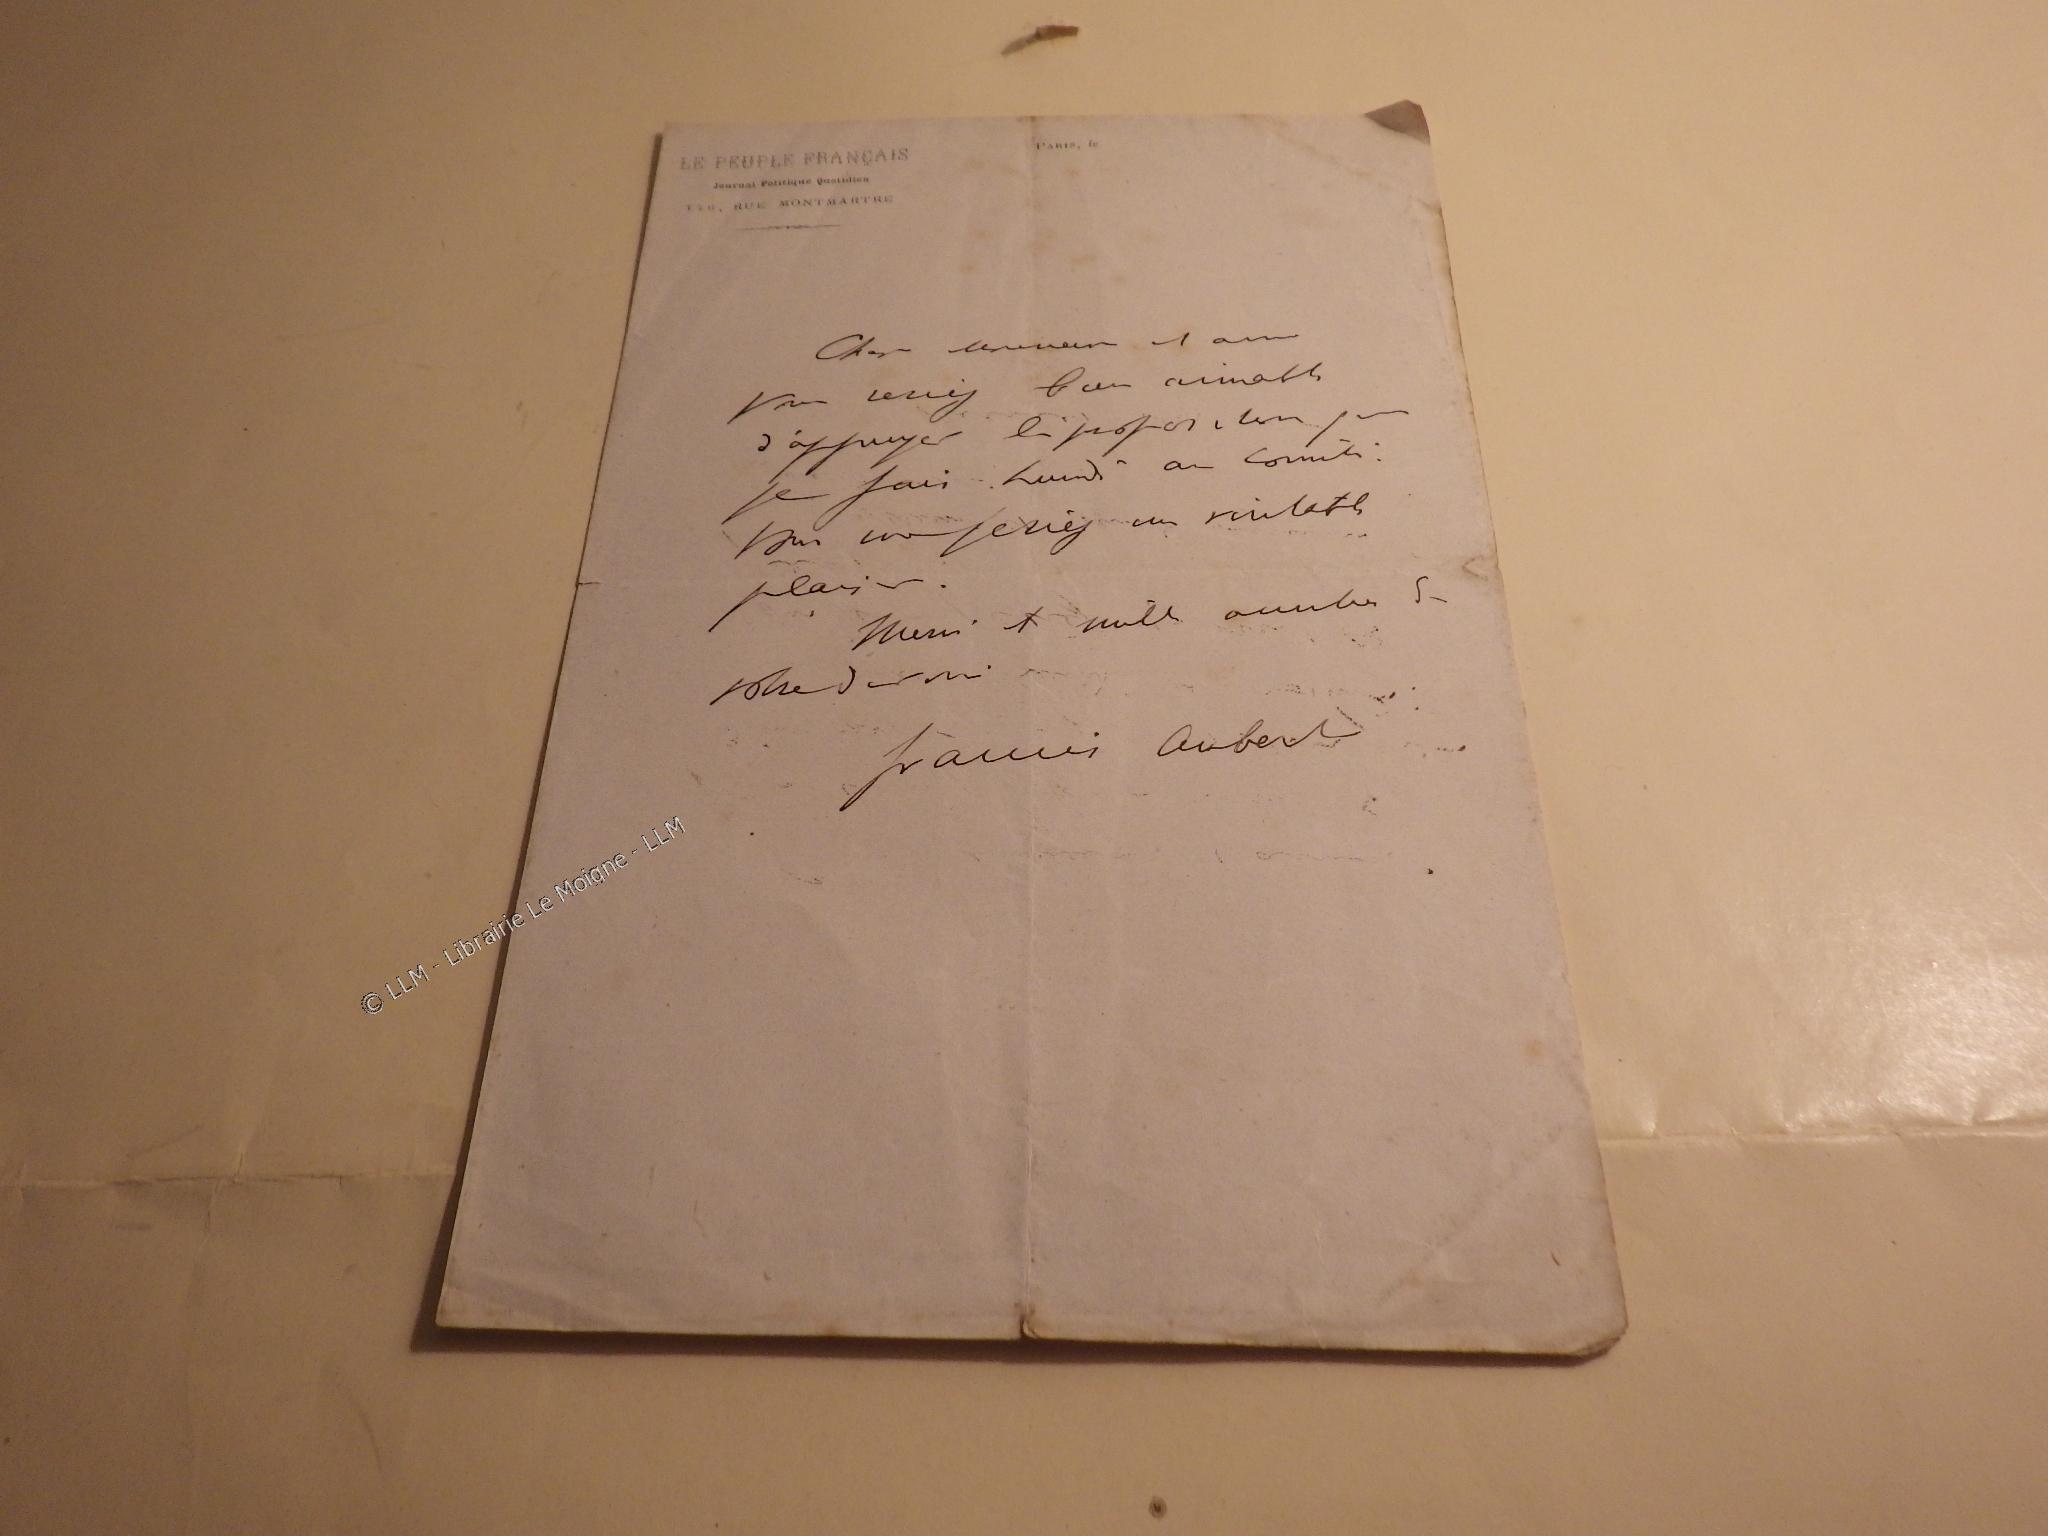 LE PEUPLE FRANÇAIS
Journal Politique Quotidien
RUE MONTMARTRE
PARIS, le
Cher et ami
Vous seriez bien aimable
d'appuyer la proposition que
je fais lundi au Comité.
Vous me feriez un véritable
plaisir.
Merci et mille amitiés de
votre dévoué
Francis Aubert
© LLM - Librairie Le Moigne - LLM